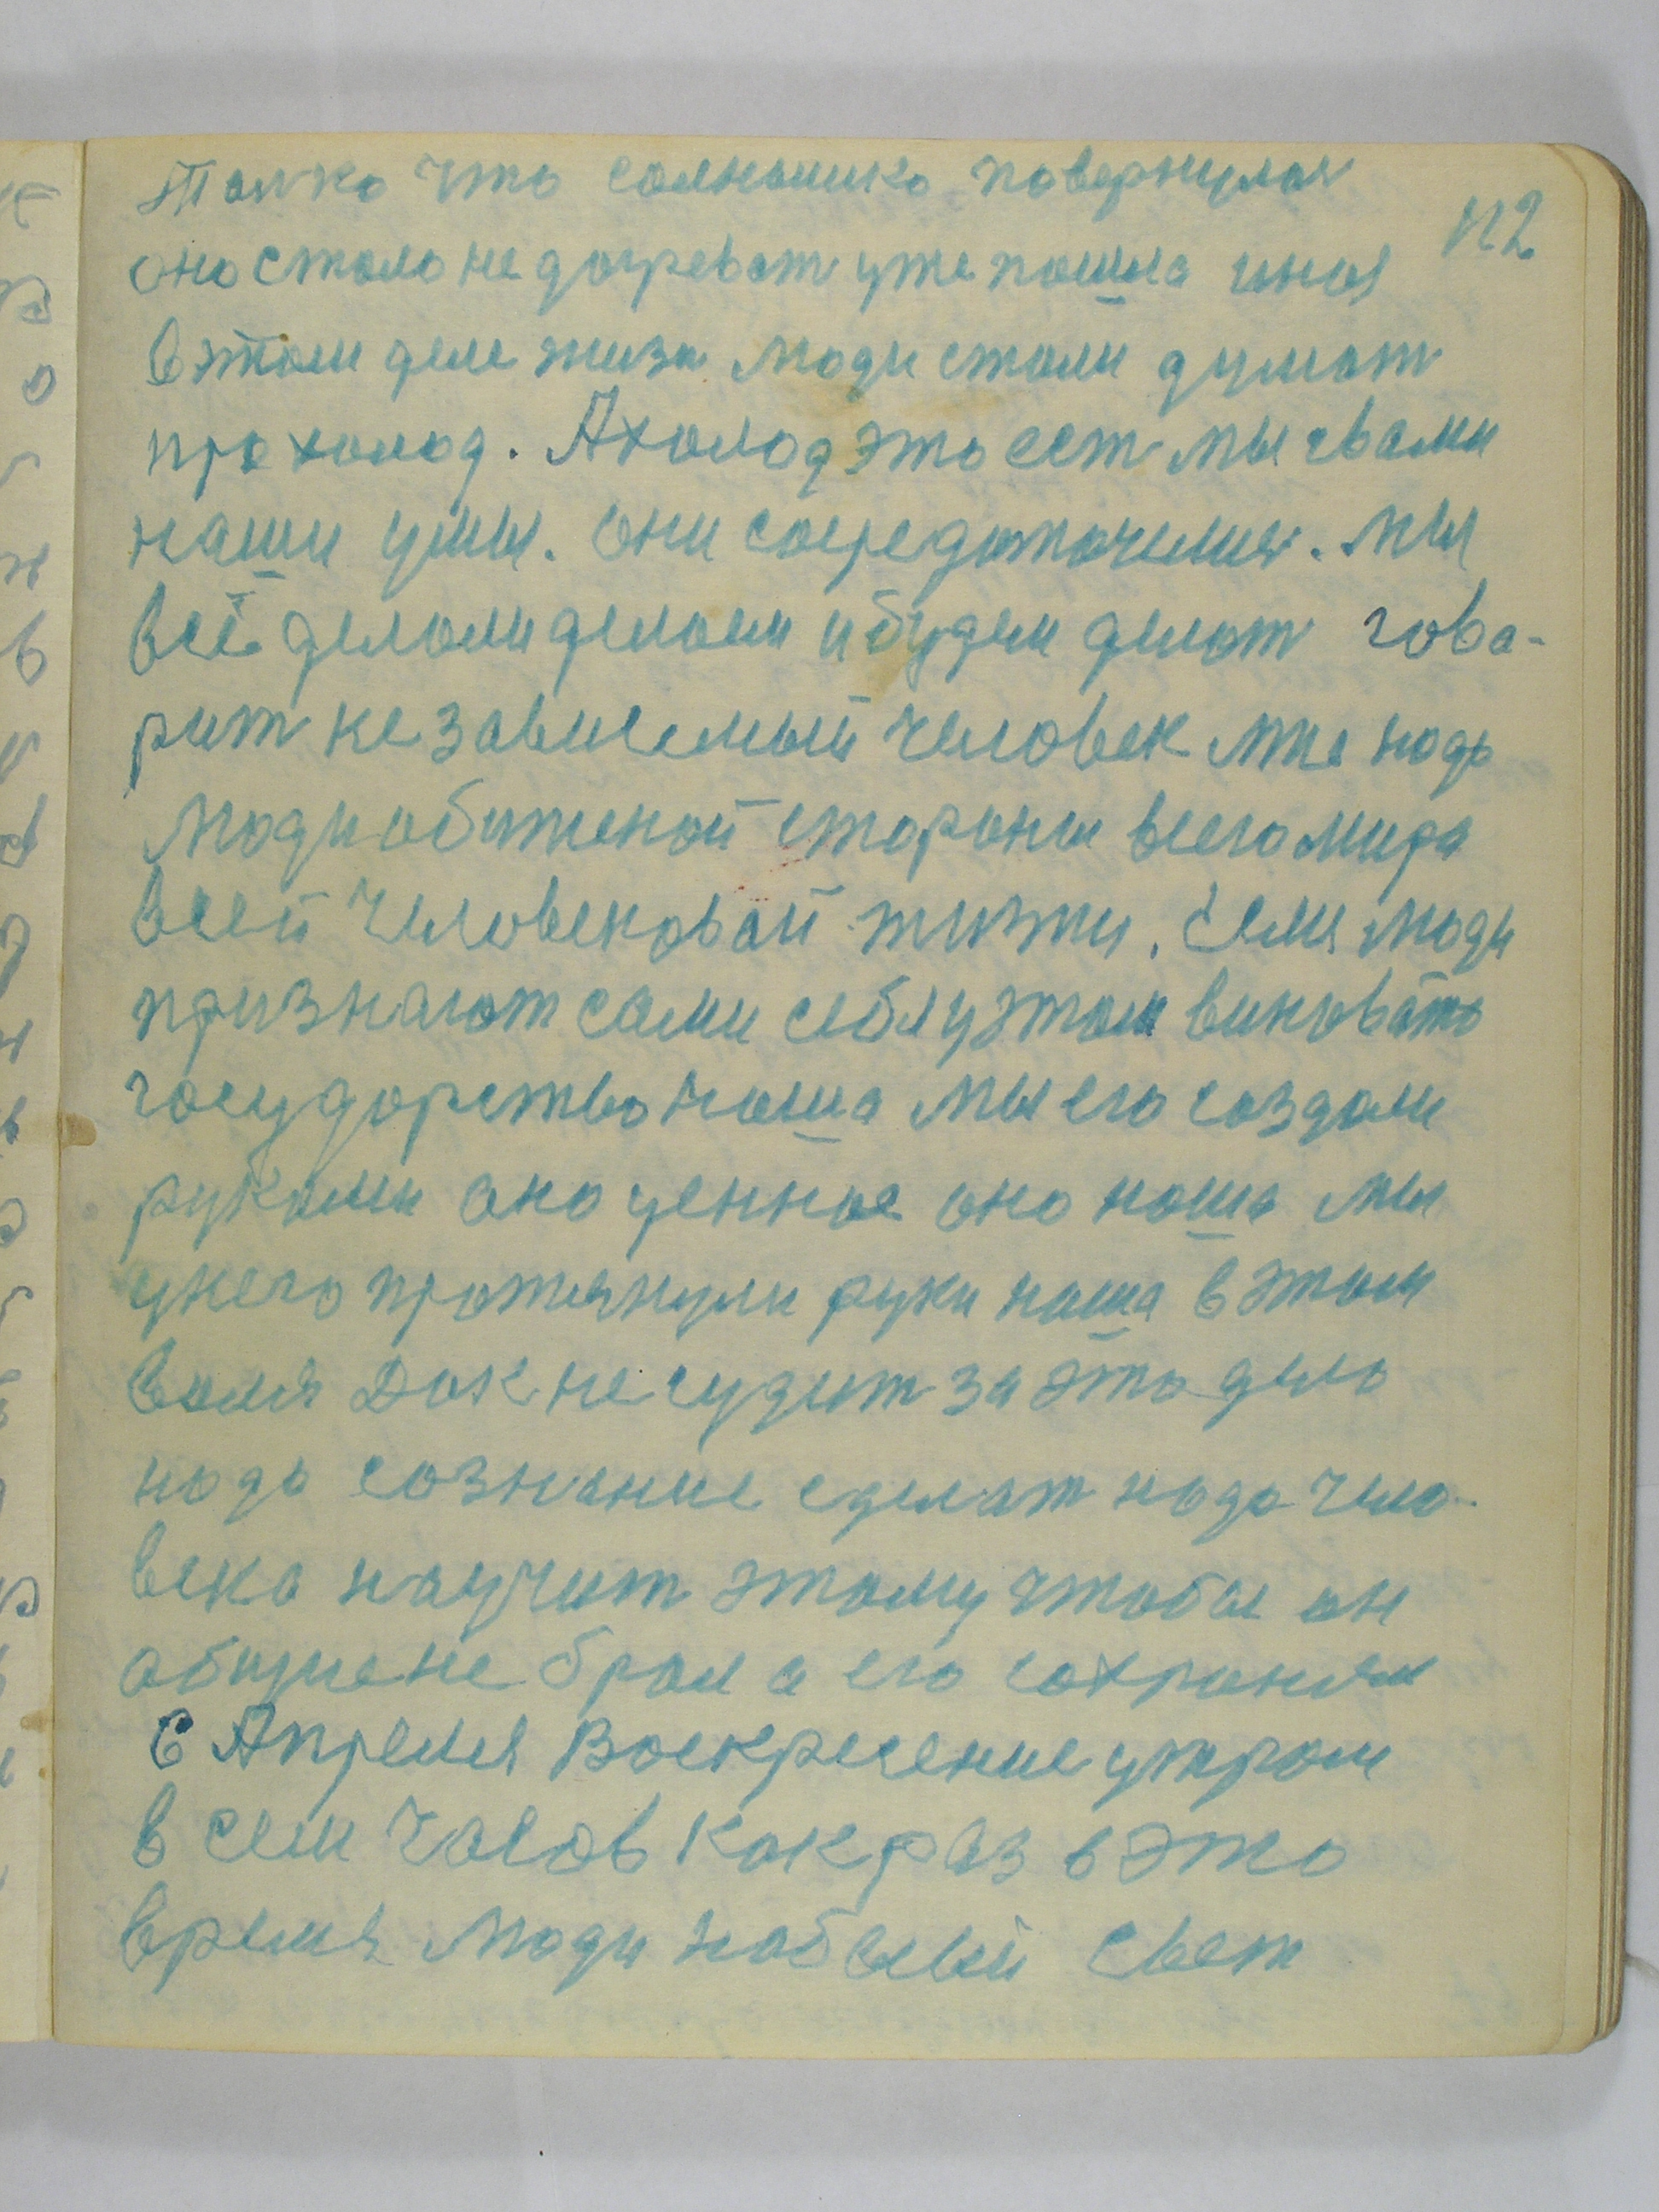 Толко что солнышко повернулоя
112
оно стало не догреват уже пошла иная
в этом деле жизн люди стали думат
про холод. А холод это ест мы свами
наши умы. они сосредоточилия. мы
всё делоли делаем и будем делат гова-
рит независемый человек мне надо
люди обиженой стороны всего мира
всей человековай жизни. если люди
признают сами себя у этом виновато
государство наша мы его создали
руками оно ценное оно наша мы
унего протянули руки наша в этом
воля Док не судит за это дело
надо сознание сделат надо чело-
века научит этому чтобы он
общие не брал а его сохранял
6 Апреля Воскресение утром
в сем часов как раз в это
время люди на белый свет